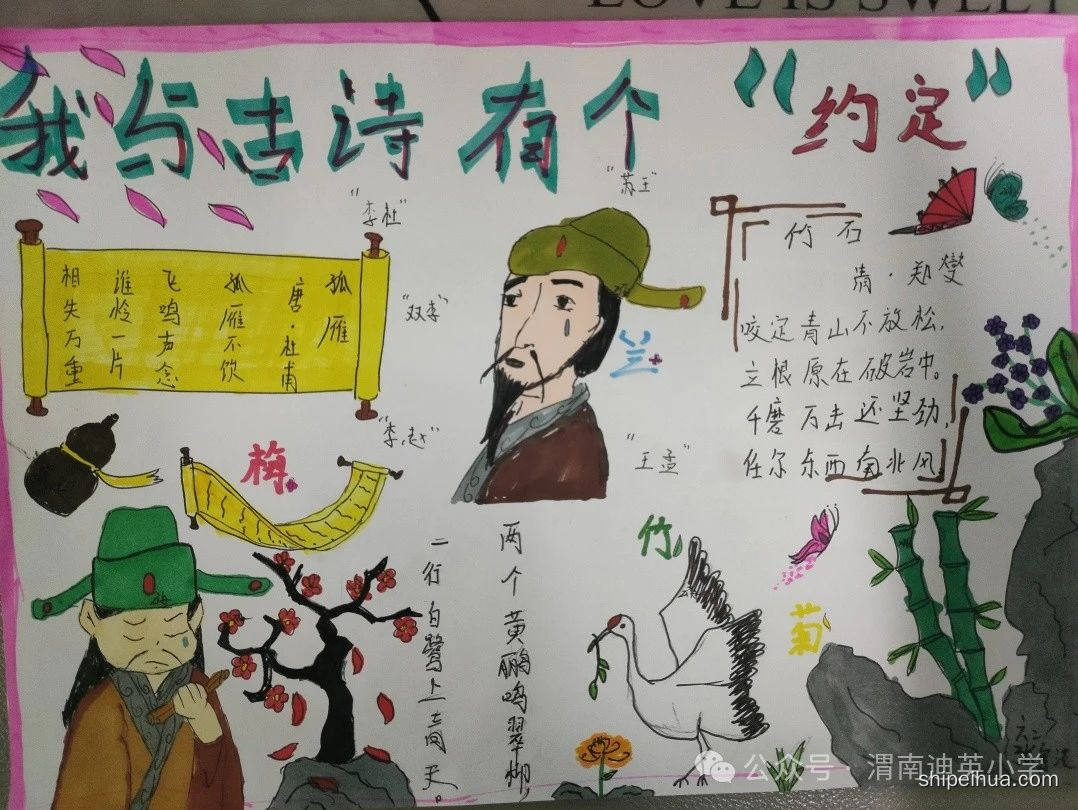 LOVE IS SWEET
我与古诗有个
“约定”
“苏王”
“李杜”
孤雁
唐·杜甫
孤雁不饮
飞鸣声念
谁怜一片
相失万重
“双李”
兰
竹石
清·郑燮
咬定青山不放松,
立根原在破岩中。
千磨万击还坚劲,
任尔东西南北风。
梅
“王孟”
两个黄鹂鸣翠柳,
一行白鹭上青天。
竹
菊
六二
公众号·渭南迪英小学
shipeihua.com